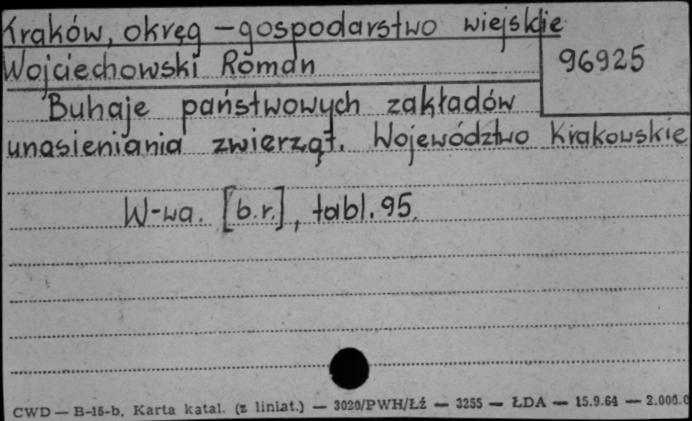 Kraków, okręg - gospodarstwo wiejskie
Wojciechowski Roman
96925
Buhaje państwowych zakładów
unasieniania zwierząt. Województwo Krakowskie
W-wa. [b.r.], tabl. 95.
CWD — B-15-b, Karta katal. (z liniat.) — 3020/PWH/Łź — 3255 — ŁDA — 15.9.64 — 2.000.0